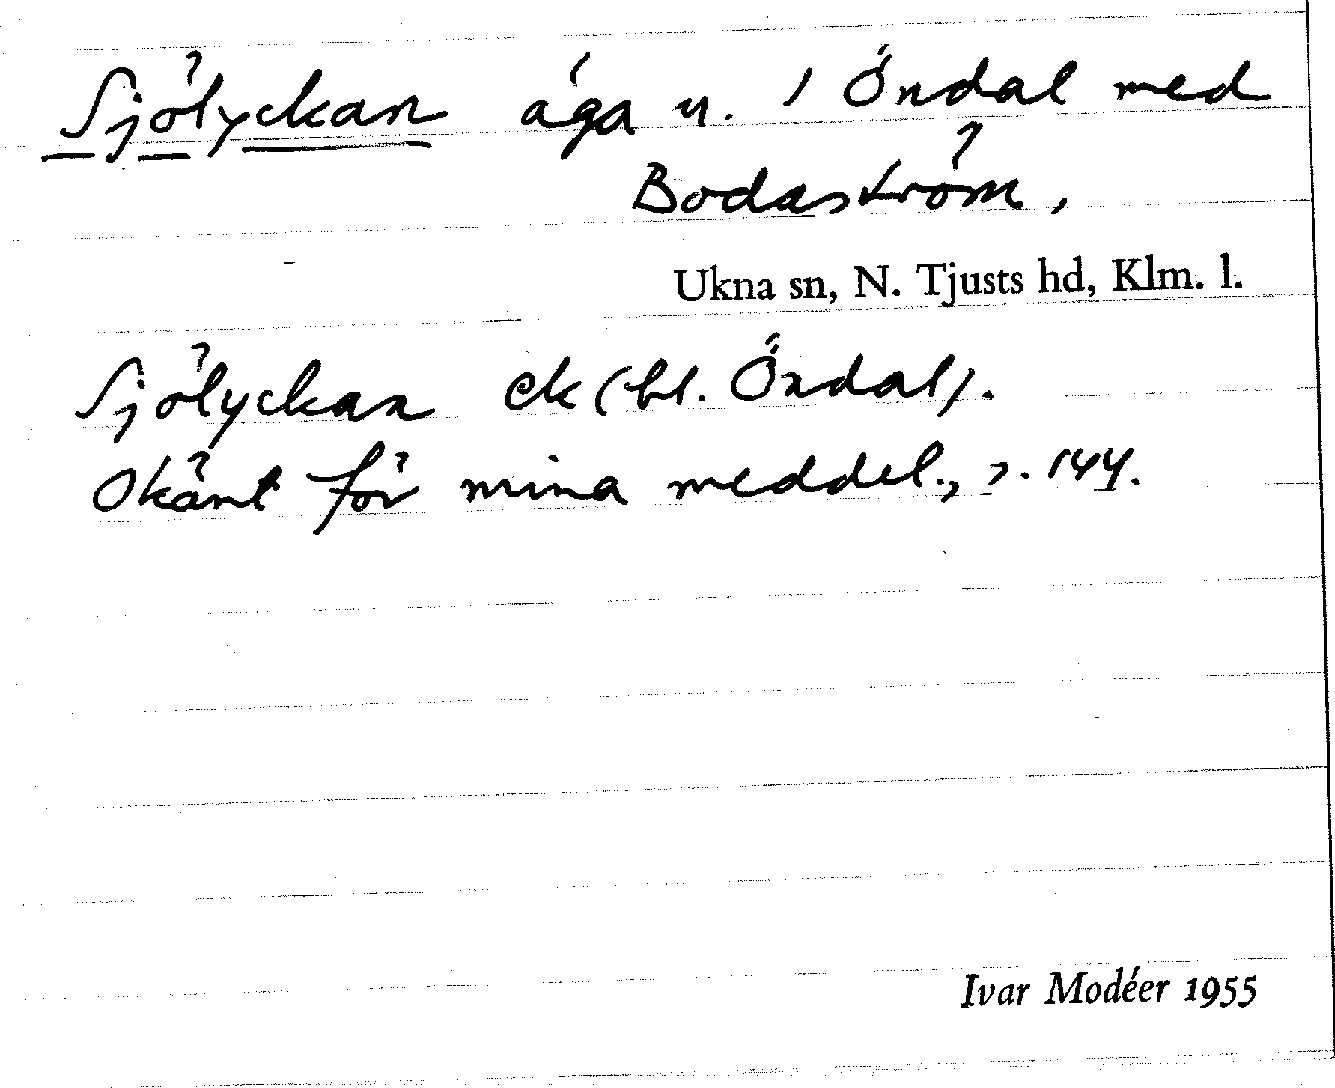 Sjölyckan äga u. 1 Öndal med
Bodaström,
Ukna sn, N. Tjusts hd, Klm. l.
Sjölyckan ek (bl. Öndal).
Okänt för mina meddel., s. 144.
Ivar Modéer 1955